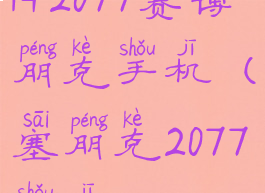 2077赛博
péng kè shǒu jī
朋克手机（
sāi péng kè
塞朋克2077
shǒu jī